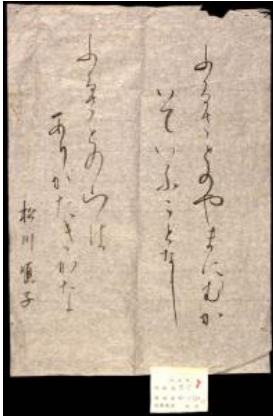 ふるさとのやまにむか
いていふことなし
ふるさとの山は
ありがたきかな
松川順子